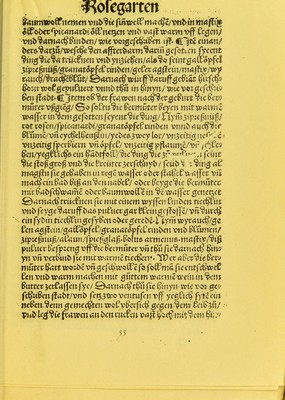 Rosegarten
baumwoll nemen vnd die sinwell machē/vnd in mastix
öll oder spicanardi öll netzen vnd vast warm vff legen/
vnd darnach binden/wie vorgeschriben ist.
waschē den affterdarm darin gesotten syent
ding die da trücknen vnd ynziehen/als do seint gallöpfel
zipreßnüß/granatöpfel rinden/geler agstein/mastix/wy
rauch/drachēblůt/Darnach würff daruff gebrāt hirtzß
horn wol gepuluert vnnd thů in hinyn/wie vor geschri
ben stadt. Item ob der frawen nach der geburt die ber
můter vßgieng/So sol man die bermůter beyen mit warmē
wasser in dem gesotten seyent die ding/
rot rosen/spicanardi/granatöpfel rinden vnnd auch die
blůmē/vn eychenlaub/yedes zwey lot/vnzeitig
vnzeitig sperbiern vn̄ öpfel/vnzeitig pflaumē/
yegklichs ein hādtfoll/die ding die
die stoß groß vnd die breitter zerschnyd/seüd
magstu sie gehaben in regē wasser oder stahel wasser vn̄
mach ein bad biß an den nabel/oder beyge die bermůter
mit badschwamē oder baumwoll in die wasser genetzt
Darnach trücknen sie mit einem wyssen linden tiechlin
vnd seyge daruff das puluer gar klein gestossen/vn̄ durch
ein sydin tiechlin gesyben oder geredē
len agstein/gallöpfel/granatöpfel rinden vnd blůmen/
zipreßnüß/allaun/spießglaß/bolus armenus/mastix/diß
puluer besprēg vff die bermůter vn̄ thů sie darnach hin
yn vn̄ verbind sie mit warmē tiechern. Wer aber die ber
můter hatt wordē vn̄ geschwollē so soll mā sie entschwel
len vnd warm machen mit gůttem warmē wein in dem
butter zerlassen sye/Darnach thů sie hinyn wie vor ge
schriben stadt/vnd setz zwo ventusen vff yeglich sytē ein
neben denn gemechten wol vbersich gegen dem leib zů/
vnd leg die frawen an den rucken vast hoch mit dem hin
55